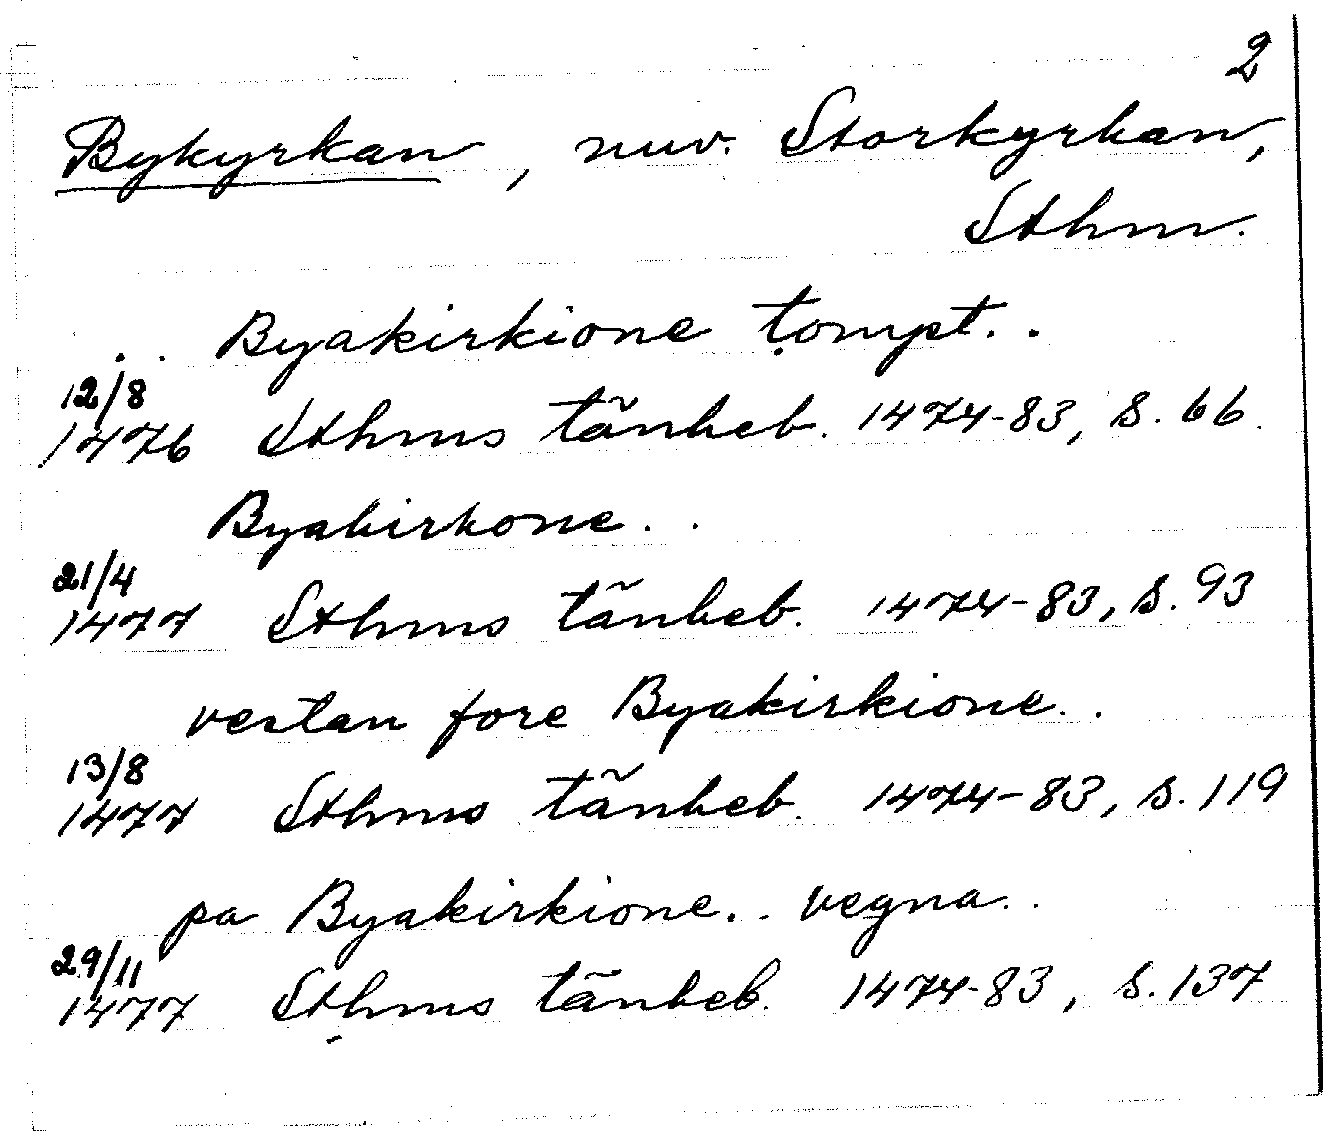 2
Bykyrkan, nuv. Storkyrkan,
Sthm.
. . Byakirkione tompt. .
12/8
1476 Sthms tänkeb. 1474-83, s. 66.
Byakirkone. .
21/4
1477 Sthms tänkeb. 1474-83, s. 93
vestan fore Byakirkione. .
13/8
1477 Sthms tänkeb. 1474-83, s. 119
pa Byakirkione. . vegna. .
29/11
1477 Sthms tänkeb. 1474-83, s. 137